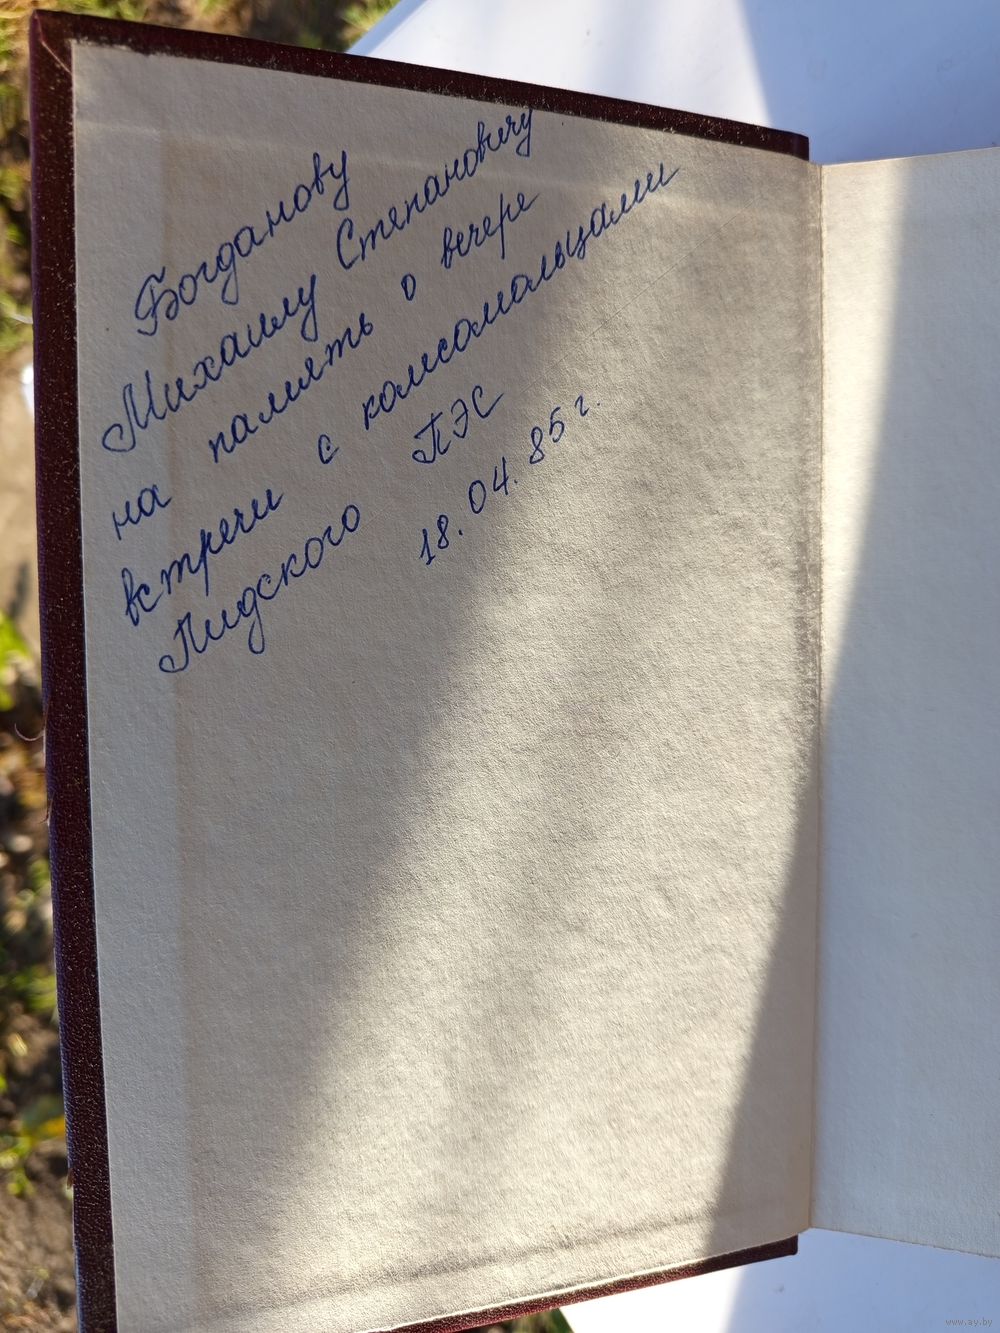 Богданову
Михаилу Степановичу
на память о вечере
встречи с комсомольцами
Лидского ПЭС
18.04.85 г.
www.ay.by